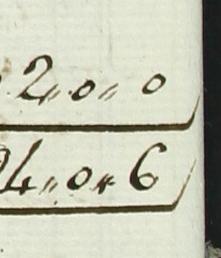 2,,0,,0
4,,0,,6